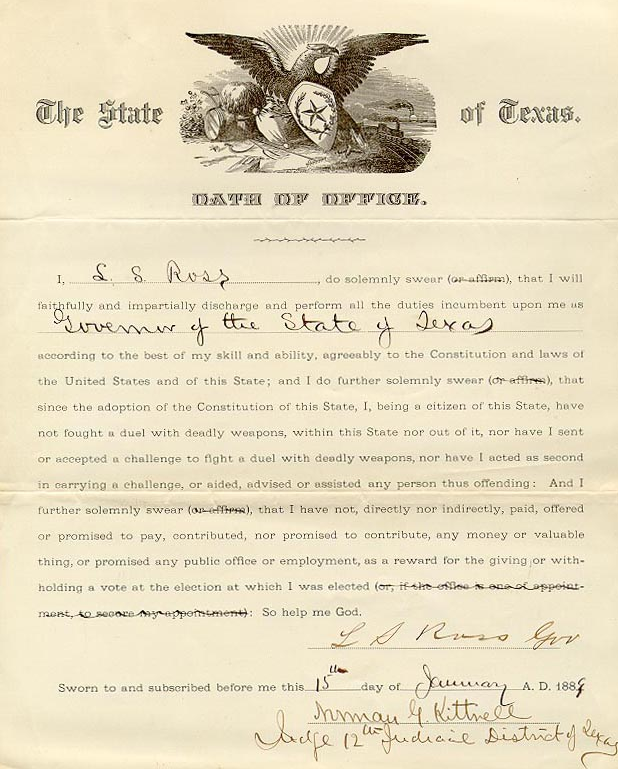 The State of Texas.
OATH OF OFFICE.
I, L. S. Ross, do solemnly swear (or affirm), that I will
faithfully and impartially discharge and perform all the duties incumbent upon me as
Governor of the State of Texas
according to the best of my skill and ability, agreeably to the Constitution and laws of
the United States and of this State; and I do further solemnly swear (or affirm), that
since the adoption of the Constitution of this State, I, being a citizen of this State, have
not fought a duel with deadly weapons, within this State nor out of it, nor have I sent
or accepted a challenge to fight a duel with deadly weapons, nor have I acted as second
in carrying a challenge, or aided, advised or assisted any person thus offending: And I
further solemnly swear (or affirm), that I have not, directly nor indirectly, paid, offered
or promised to pay, contributed, nor promised to contribute, any money or valuable
thing, or promised any public office or employment, as a reward for the giving or with-
holding a vote at the election at which I was elected (or, if the office is one of appoint-
ment, to secure my appointment): So help me God.
L S Ross Gov
Sworn to and subscribed before me this 15th day of January A. D. 1889
Norman G. Kittrell
Judge 12th Judicial District of Texas